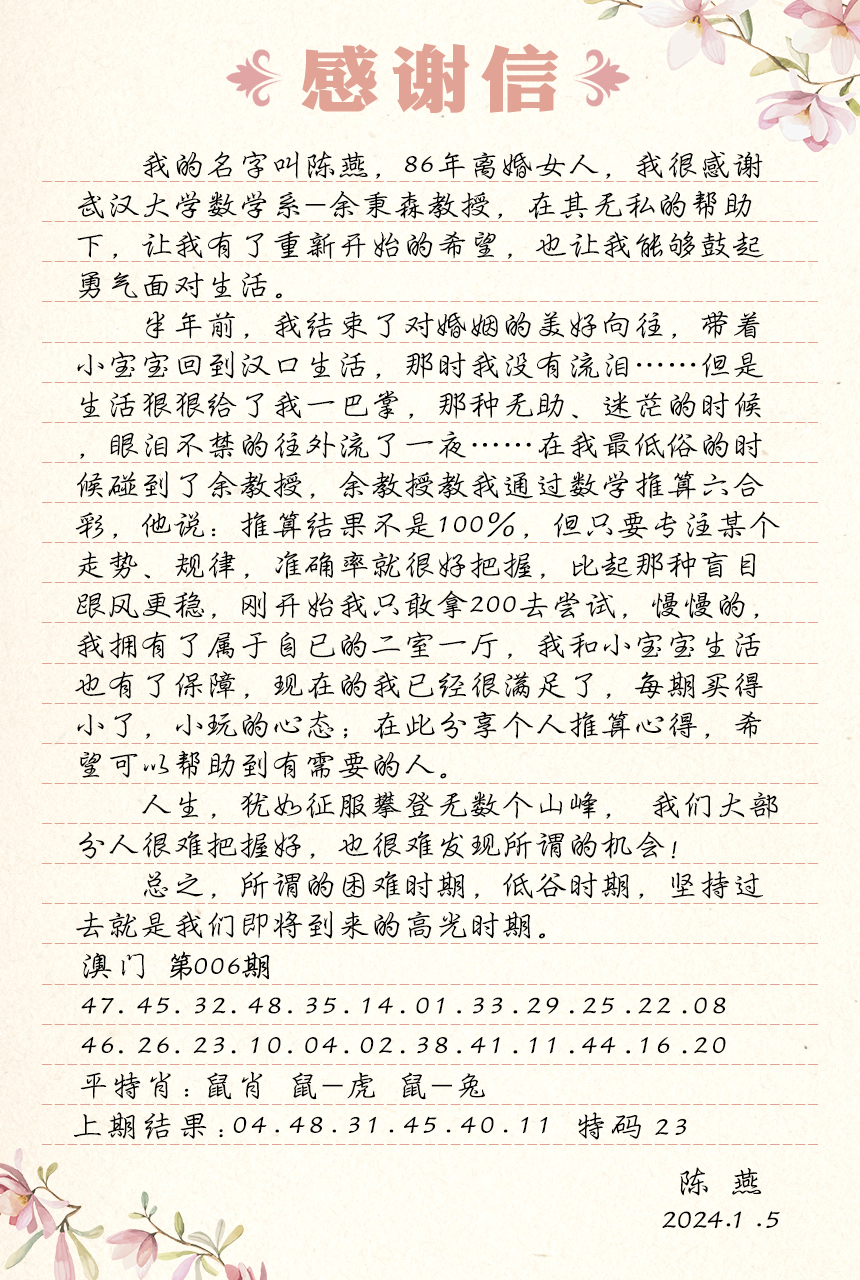 感谢信
我的名字叫陈燕，86年离婚女人，我很感谢
武汉大学数学系—余秉森教授，在其无私的帮助
下，让我有了重新开始的希望，也让我能够鼓起
勇气面对生活。
半年前，我结束了对婚姻的美好向往，带着
小宝宝回到汉口生活，那时我没有流泪……但是
生活狠狠给了我一巴掌，那种无助、迷茫的时候
，眼泪不禁的往外流了一夜……在我最低俗的时
候碰到了余教授，余教授教我通过数学推算六合
彩，他说：推算结果不是100%，但只要专注某个
走势、规律，准确率就很好把握，比起那种盲目
跟风更稳，刚开始我只敢拿200去尝试，慢慢的，
我拥有了属于自已的二室一厅，我和小宝宝生活
也有了保障，现在的我已经很满足了，每期买得
小了，小玩的心态；在此分享个人推算心得，希
望可以帮助到有需要的人。
人生，犹如征服攀登无数个山峰， 我们大部
分人很难把握好，也很难发现所谓的机会！
总之，所谓的困难时期，低谷时期，坚持过
去就是我们即将到来的高光时期。
澳门 第006期
47.45.32.48.35.14.01.33.29.25.22.08
46.26.23.10.04.02.38.41.11.44.16.20
平特肖：鼠肖 鼠—虎 鼠—兔
上期结果：04.48.31.45.40.11 特码 23
陈 燕
2024.1.5